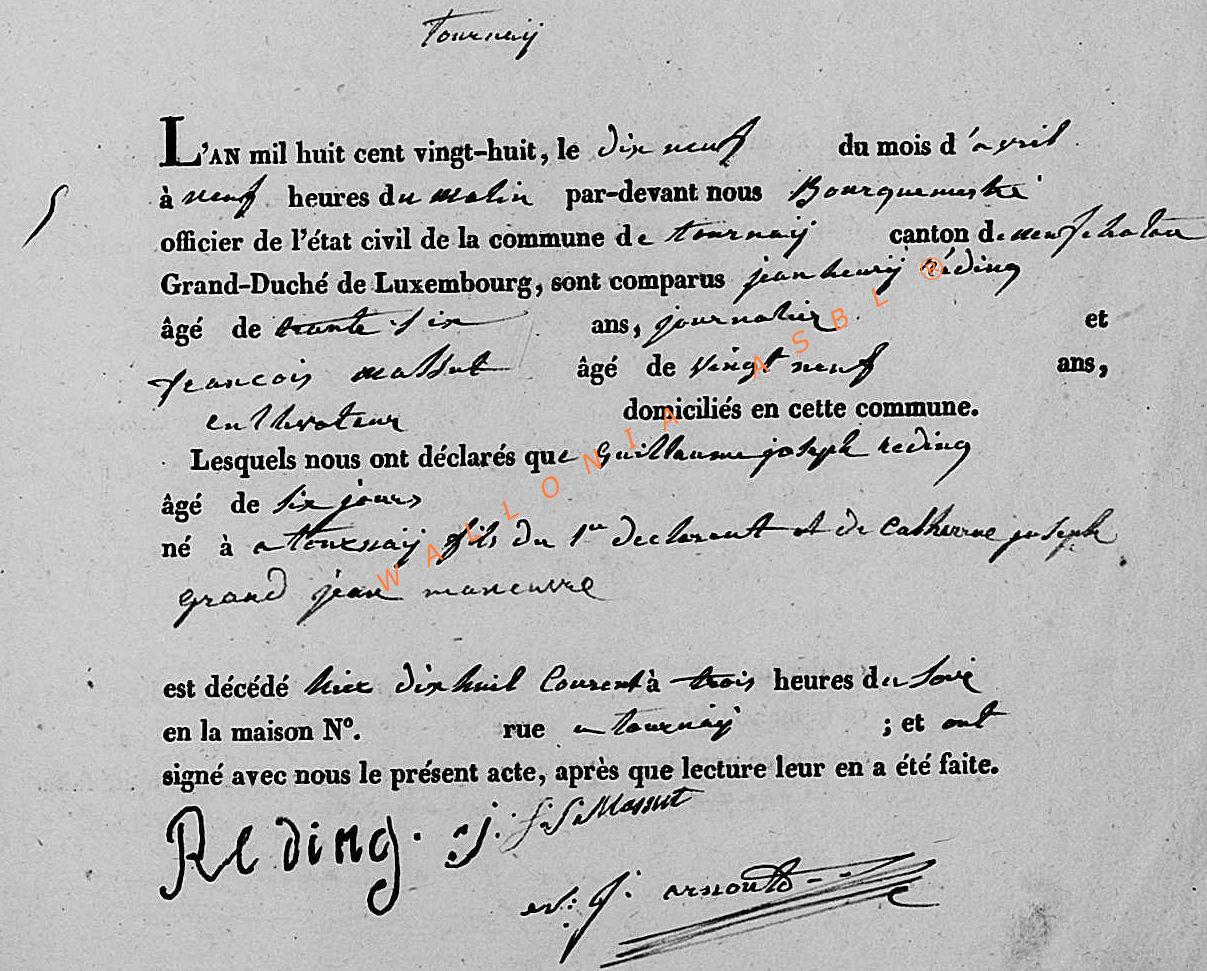 tournaÿ
L'AN mil huit cent vingt-huit, le dix neuf du mois d'avril
à neuf heures du matin par-devant nous Bourguemestre
officier de l'état civil de la commune de tournaÿ canton de neufchateau
Grand-Duché de Luxembourg, sont comparus jean henrÿ réding
âgé de trante six ans, journalier et
francois massut âgé de vingt neuf ans,
cultivateur domiciliés en cette commune.
Lesquels nous ont déclarés que Guillaume joseph reding
âgé de six jours
né à a tournaÿ fils du 1er declarant et de Catherine joseph
grand jean maneuvre
est décédé hier dix huit Courant à trois heures du soir
en la maison N°. rue a tournaÿ ; et ont
signé avec nous le présent acte, après que lecture leur en a été faite.
Reding. j. Massut
j. arnould
WALLONIA ASBL ®